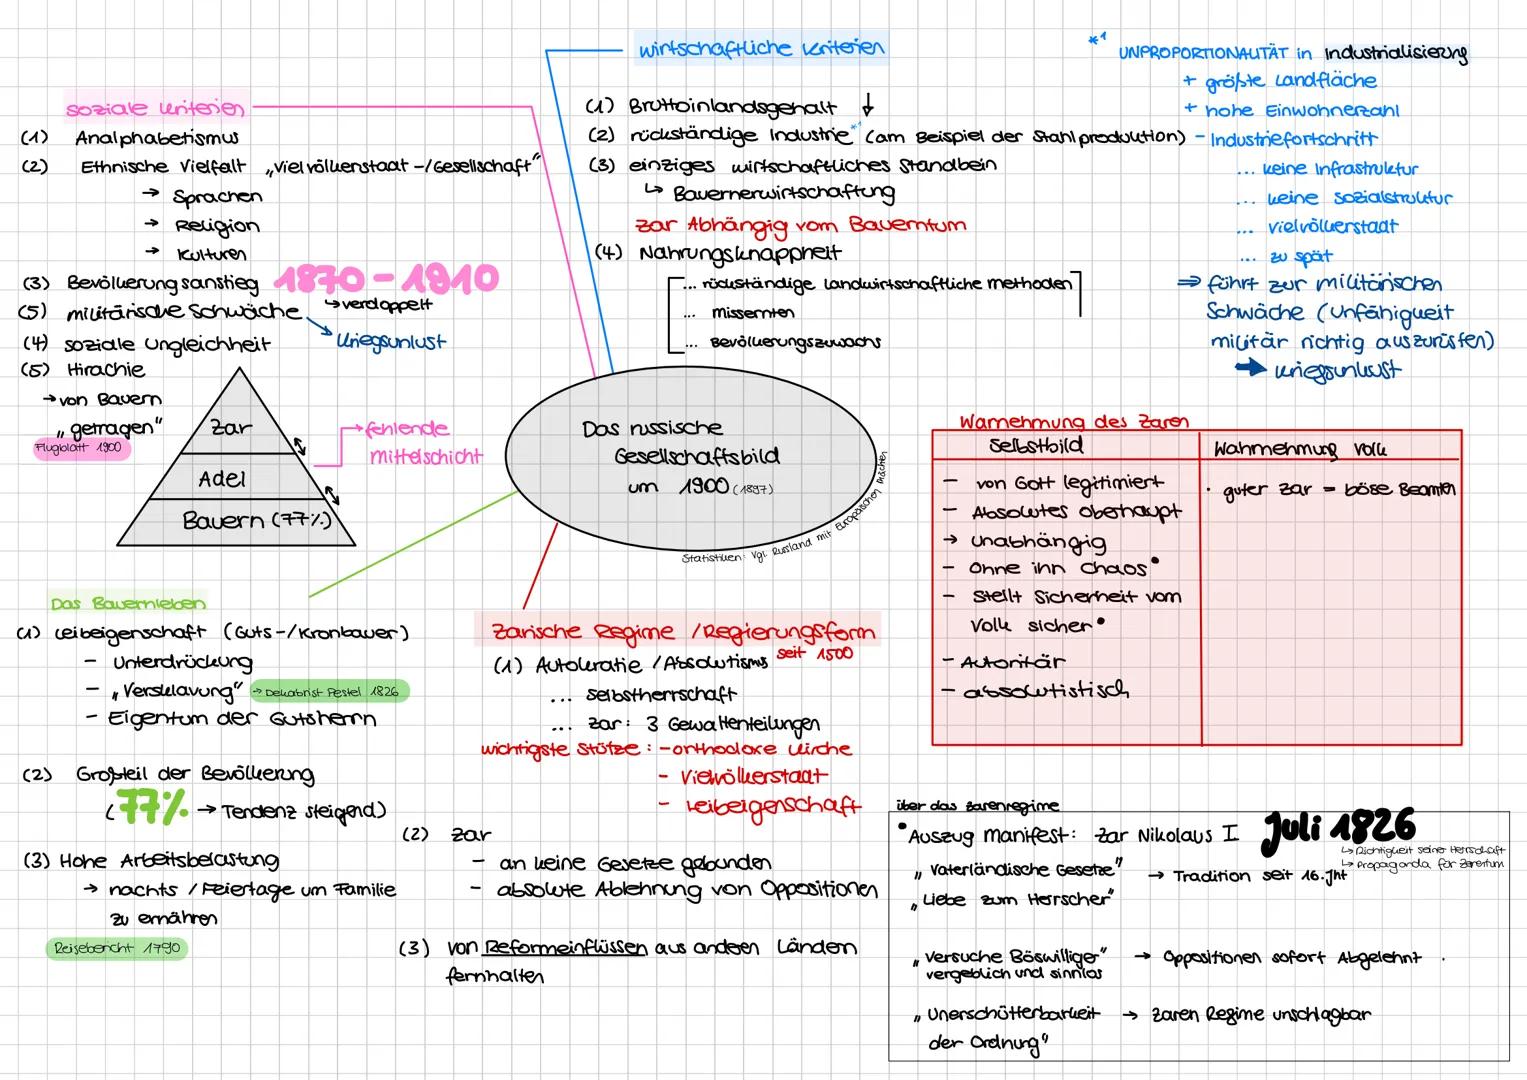 soziale Kriterien
(1) Analphabetismus
(2) Ethnische Vielfalt „Vielvölkerstaat -/Gesellschaft"
→ Sprachen
→ Religion
→ Kulturen
(3) Bevölkerungsanstieg 1870 - 1910
↳ verdoppelt
(5) militärische Schwäche
↘ Kriegsunlust
(4) soziale Ungleichheit
(5) Hirachie
→ von Bauern
„getragen"
Flugblatt 1900
Zar
Adel
Bauern (77%)
fehlende
mittelschicht
wirtschaftliche Kriterien
(1) Bruttoinlandsgehalt ↓
(2) rückständige Industrie*¹ (am Beispiel der Stahlproduktion)
(3) einziges wirtschaftliches Standbein
↳ Bauernerwirtschaftung
Zar Abhängig vom Bauerntum
(4) Nahrungsknappheit
... rückständige Landwirtschaftliche methoden
... missernten
... Bevölkerungszuwachs
*¹ UNPROPORTIONALITÄT in Industrialisierung
+ größte Landfläche
+ hohe Einwohnerzahl
- Industriefortschritt
... keine Infrastruktur
... keine Sozialstruktur
... vielvölkerstaat
... zu spät
⇒ führt zur militärischen
Schwäche (Unfähigkeit
militär richtig auszurüsten)
➡ Kriegsunlust
Das russische
Gesellschaftsbild
um 1900 (1897)
Statistiken: Vgl. Russland mit Europäischen Mächten
Warnehmung des Zaren
Selbstbild
- von Gott legitimiert
- Absolutes oberhaupt
→ unabhängig
- Ohne ihn Chaos•
- Stellt Sicherheit vom
Volk sicher•
- Autoritär
- absolutistisch
Wahrnehmung Volk
· guter Zar = böse Beamten
Das Bauernleben
(1) Leibeigenschaft (Guts-/Kronbauer)
- Unterdrückung
- „Versklavung" → Dekabrist Pestel 1826
- Eigentum der Gutsherrn
(2) Großteil der Bevölkerung
(77% → Tendenz steigend)
(3) Hohe Arbeitsbelastung
→ nachts / Feiertage um Familie
zu ernähren
Reisebericht 1790
Zarische Regime /Regierungsform
(1) Autokratie /Absolutisms seit 1500
... selbstherrschaft
... Zar: 3 Gewaltenteilungen
wichtigste Stütze: - orthodoxe Kirche
- Vielvölkerstaat
- Leibeigenschaft
(2) Zar
- an keine Gesetze gebunden
- absolute Ablehnung von Oppositionen
(3) von Reformeinflüssen aus anderen Ländern
fernhalten
über das Zarenregime
•Auszug Manifest: Zar Nikolaus I Juli 1826
↳ Richtigkeit seiner Herrschaft
↳ Propaganda für Zarentum
„Vaterländische Gesetze" → Tradition seit 16.Jht
„Liebe zum Herrscher"
„Versuche Böswilliger" → Oppositionen sofort Abgelehnt .
vergeblich und sinnlos
„Unerschütterbarkeit → Zaren Regime unschlagbar
der Ordnung"